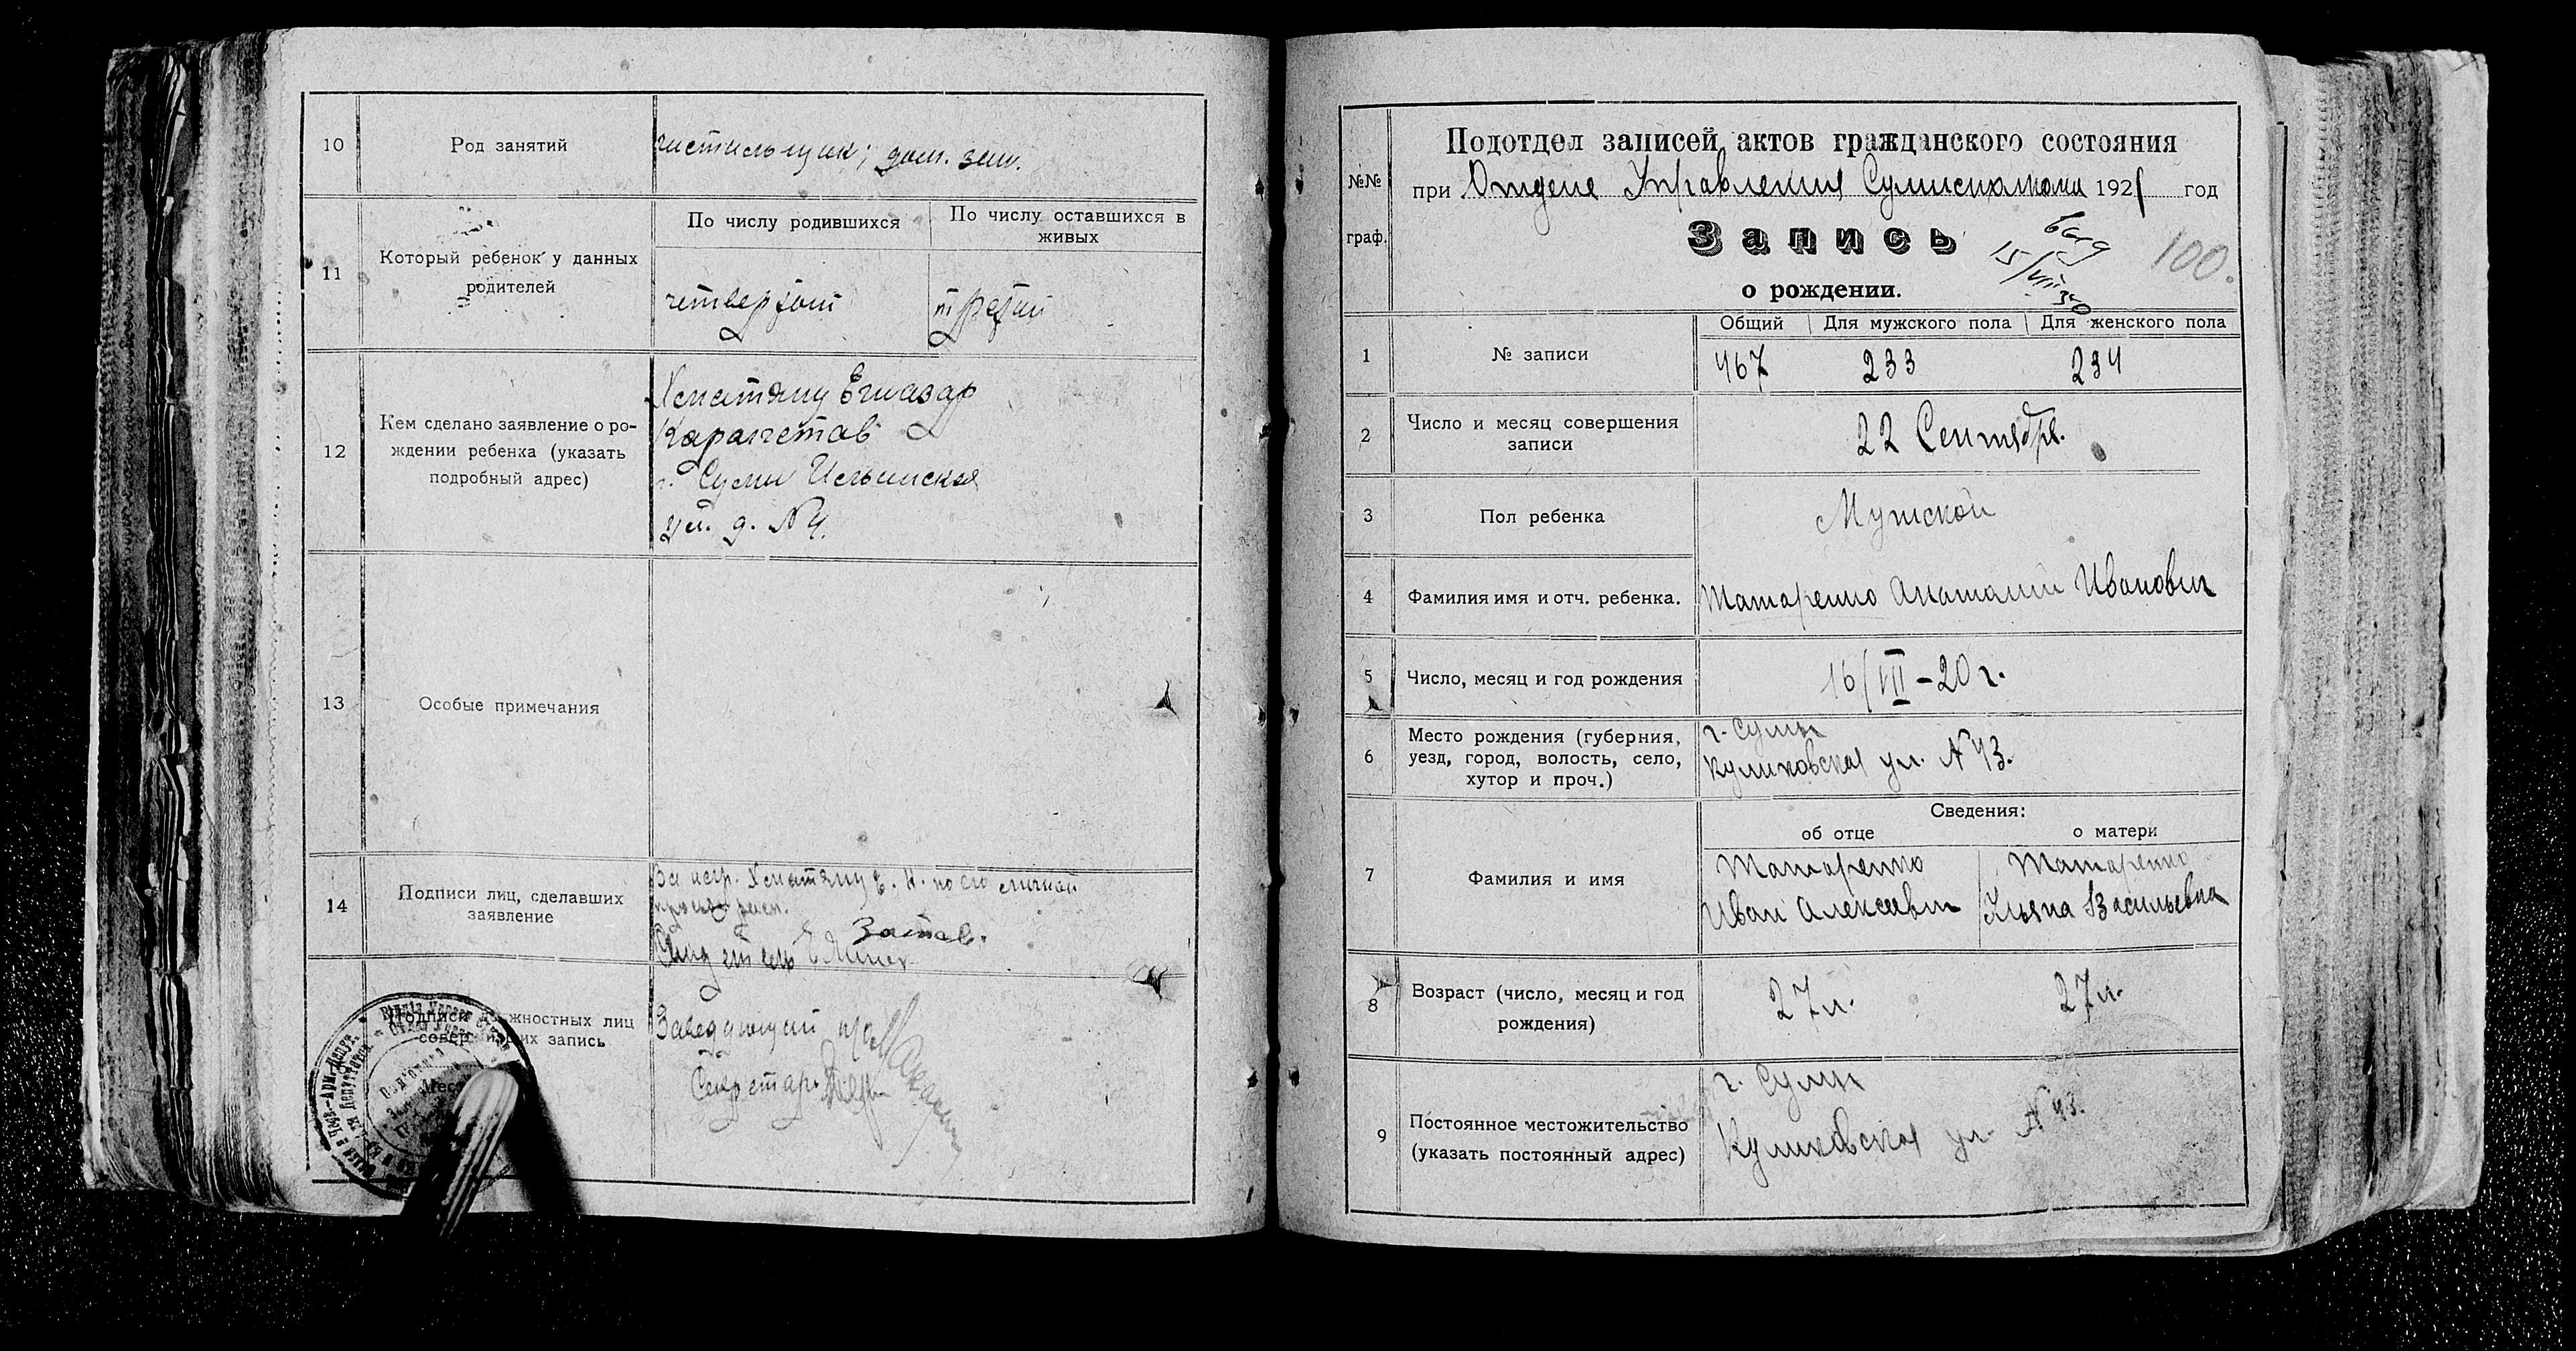 10
Род занятий
чистильщик; дом. зан.
11
Который ребенок у данных
родителей
По числу родившихся
По числу оставшихся в
живых
четвертый
третий
12
Кем сделано заявление о ро-
ждении ребенка (указать
подробный адрес)
Егиазар
Карапетов
г. Сумы Ильинская
ул. д. №4.
13
Особые примечания
14
Подписи лиц, сделавших
заявление
по его личной
Подписи должностных лиц
совершивших запись
Заведующий
Секретарь
№№
граф.
Подотдел записей актов гражданского состояния
при Отделе Управления Сумисполкома 1921 год
Запись
о рождении.
выд
15/VIII 30
100.
1
№ записи
Общий
Для мужского пола
Для женского пола
467
233
234
2
Число и месяц совершения
записи
22 Сентября.
3
Пол ребенка
Мужской
4
Фамилия имя и отч. ребенка.
Татаренко Анатолий Иванович
5
Число, месяц и год рождения
16/VII-20 г.
6
Место рождения (губерния,
уезд, город, волость, село,
хутор и проч.)
г. Сумы
Куликовская ул. №43.
7
Фамилия и имя
Сведения:
об отце
о матери
Татаренко
Иван Алексеевич
Татаренко
Ульяна Васильевна
8
Возраст (число, месяц и год
рождения)
27 л.
27 л.
9
Постоянное местожительство
(указать постоянный адрес)
г. Сумы
Куликовская ул. №43.